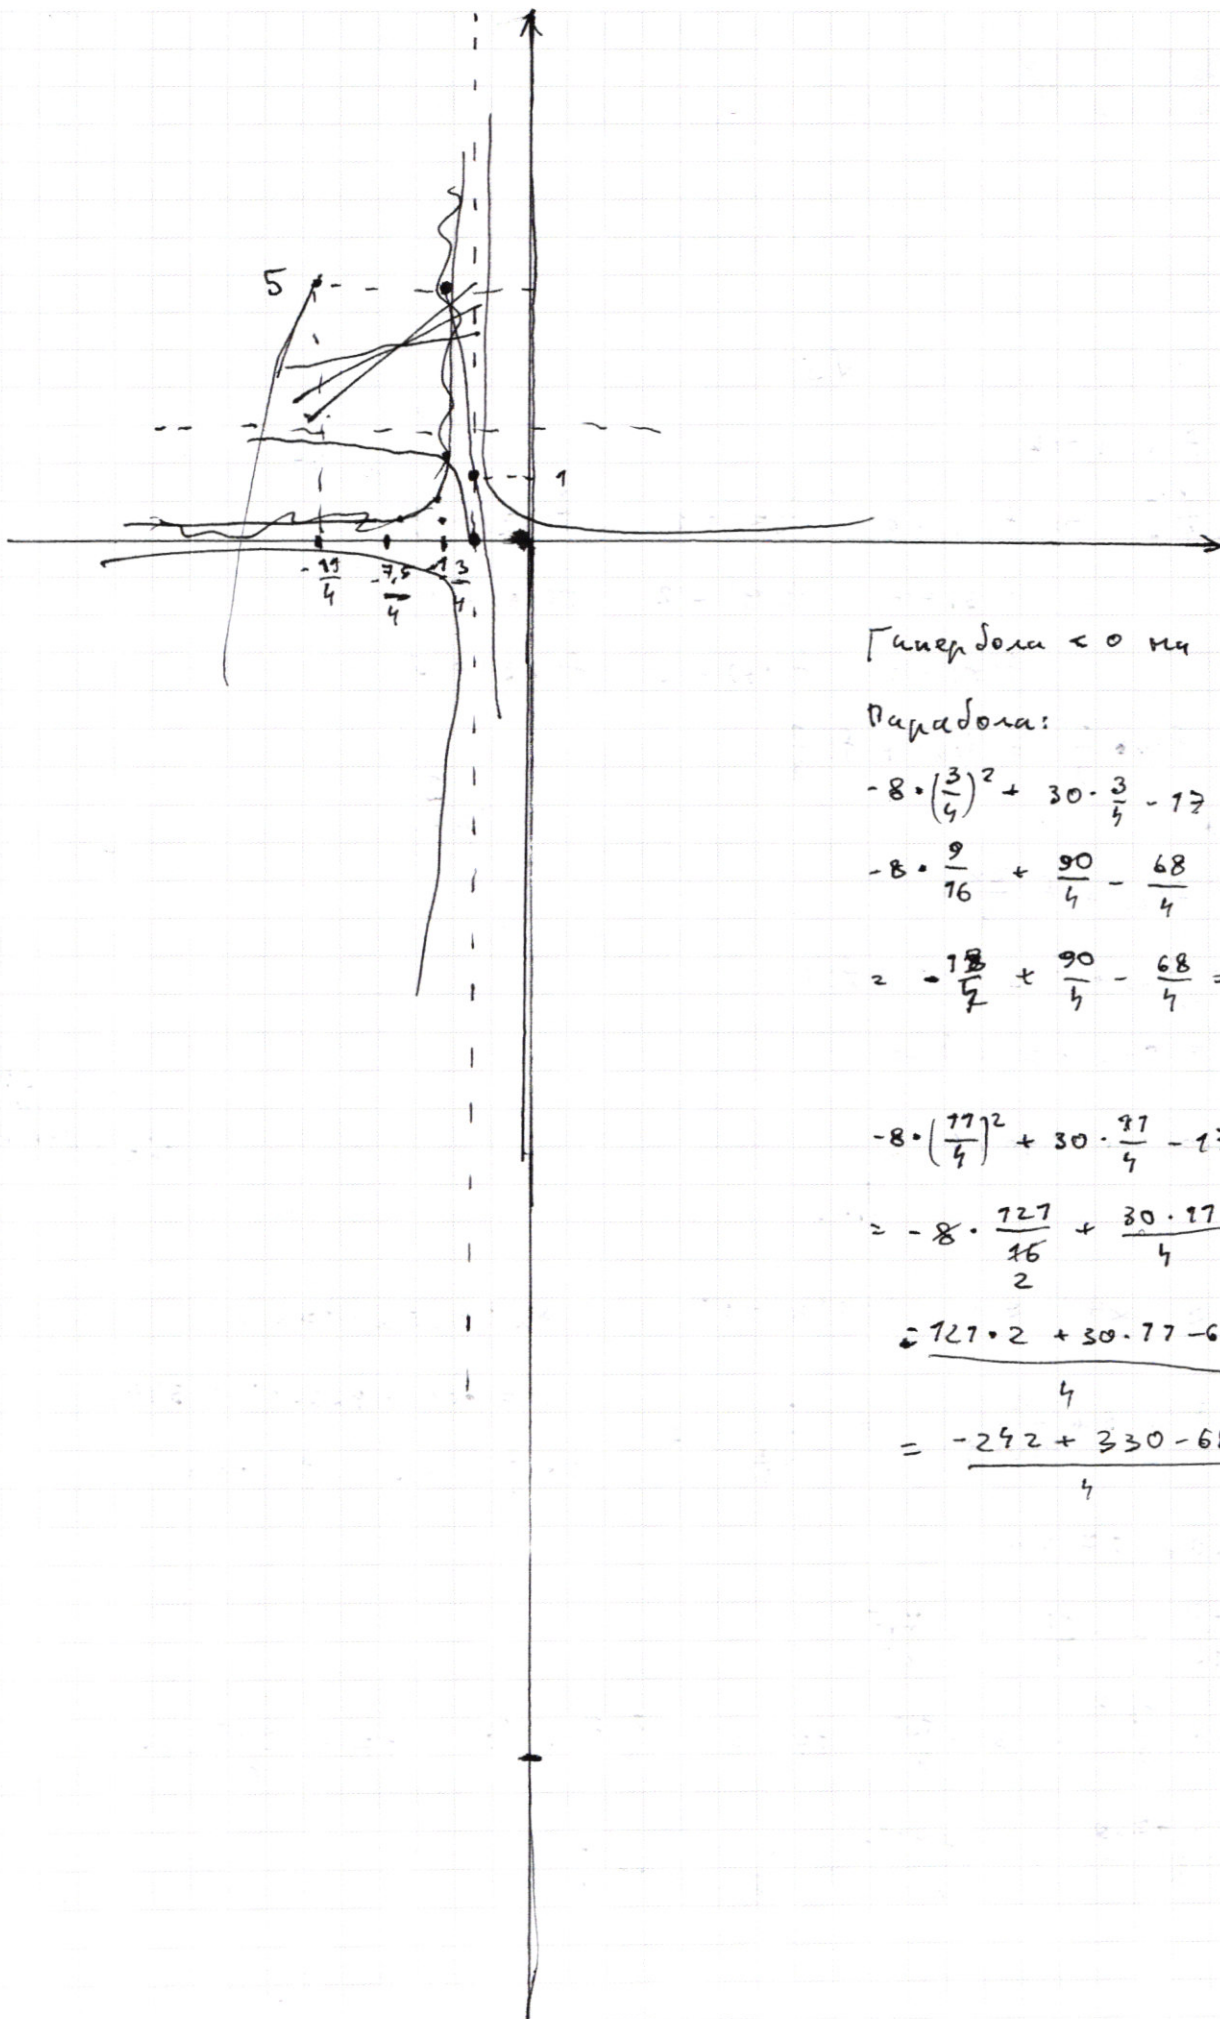 5
1
-11/4 -7,5/4 -1 3/4
Гипербола < 0 на
Парабола:
-8·(3/4)² + 30·3/4 - 17
-8·9/16 + 90/4 - 68/4
= -18/4 + 90/4 - 68/4 =
-8·(11/4)² + 30·11/4 - 1
= -8·121/16 + 30·11/4
2
= 121·2 + 30·11 - 6
4
= -242 + 330 - 68
4